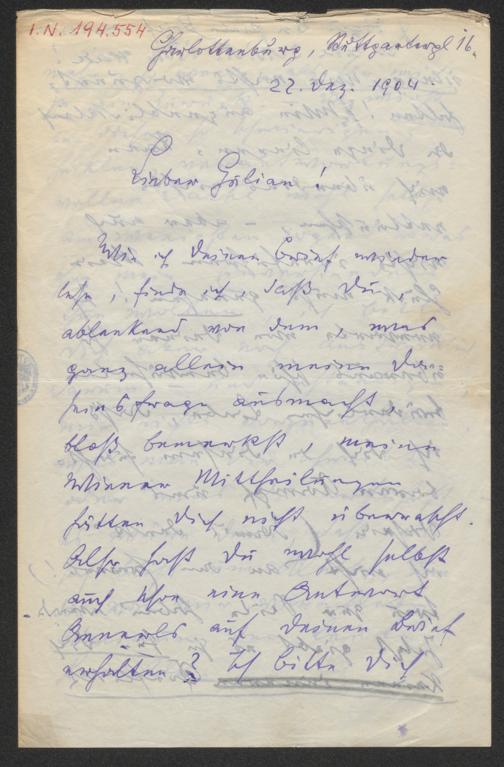 I.N. 194.554
Charlottenburg, Stuttgarterpl 16.
22. Dez. 1904.
Lieber Julian!
Wie ich Deinen Brief wieder
lese, finde ich, daß Du,
ablenkend von dem, was
ganz allein meine Da-
seinsfrage ausmacht,
bloß bemerkst, meine
Wiener Mittheilungen
hätten Dich nicht überrascht.
Also hast Du wohl selbst
auch schon eine Antwort
auf Deinen Brief
erhalten? Ich bitte Dich